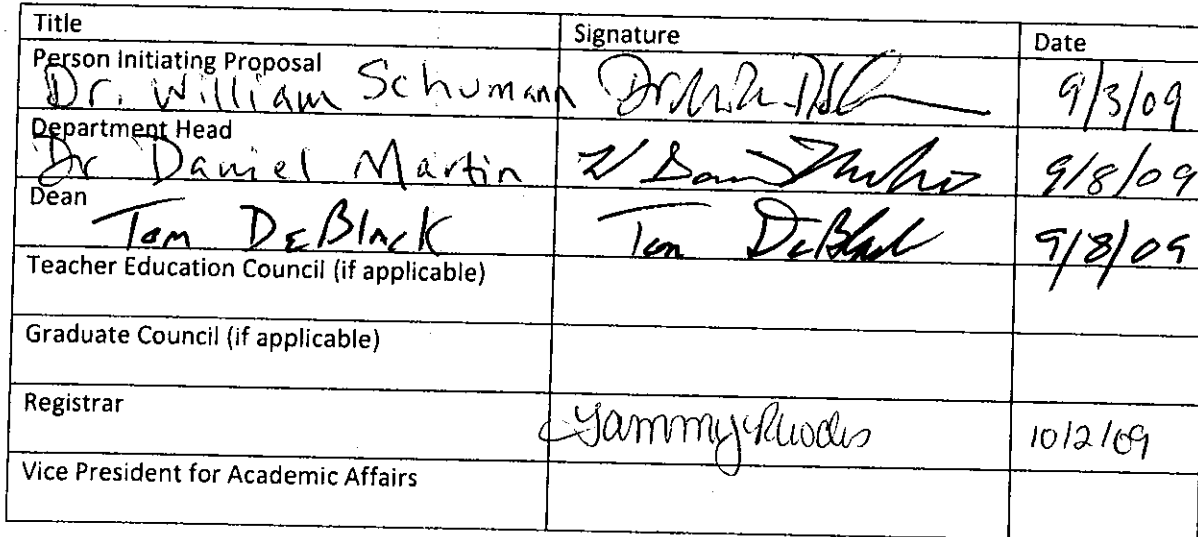 Title Signature Date
Person Initiating Proposal
Dr. William Schumann 9/3/09
Department Head
Dr Daniel Martin 9/8/09
Dean
Tom DeBlack Tom DeBlack 9/8/09
Teacher Education Council (if applicable)
Graduate Council (if applicable)
Registrar
Tammy Rhodes 10/2/09
Vice President for Academic Affairs